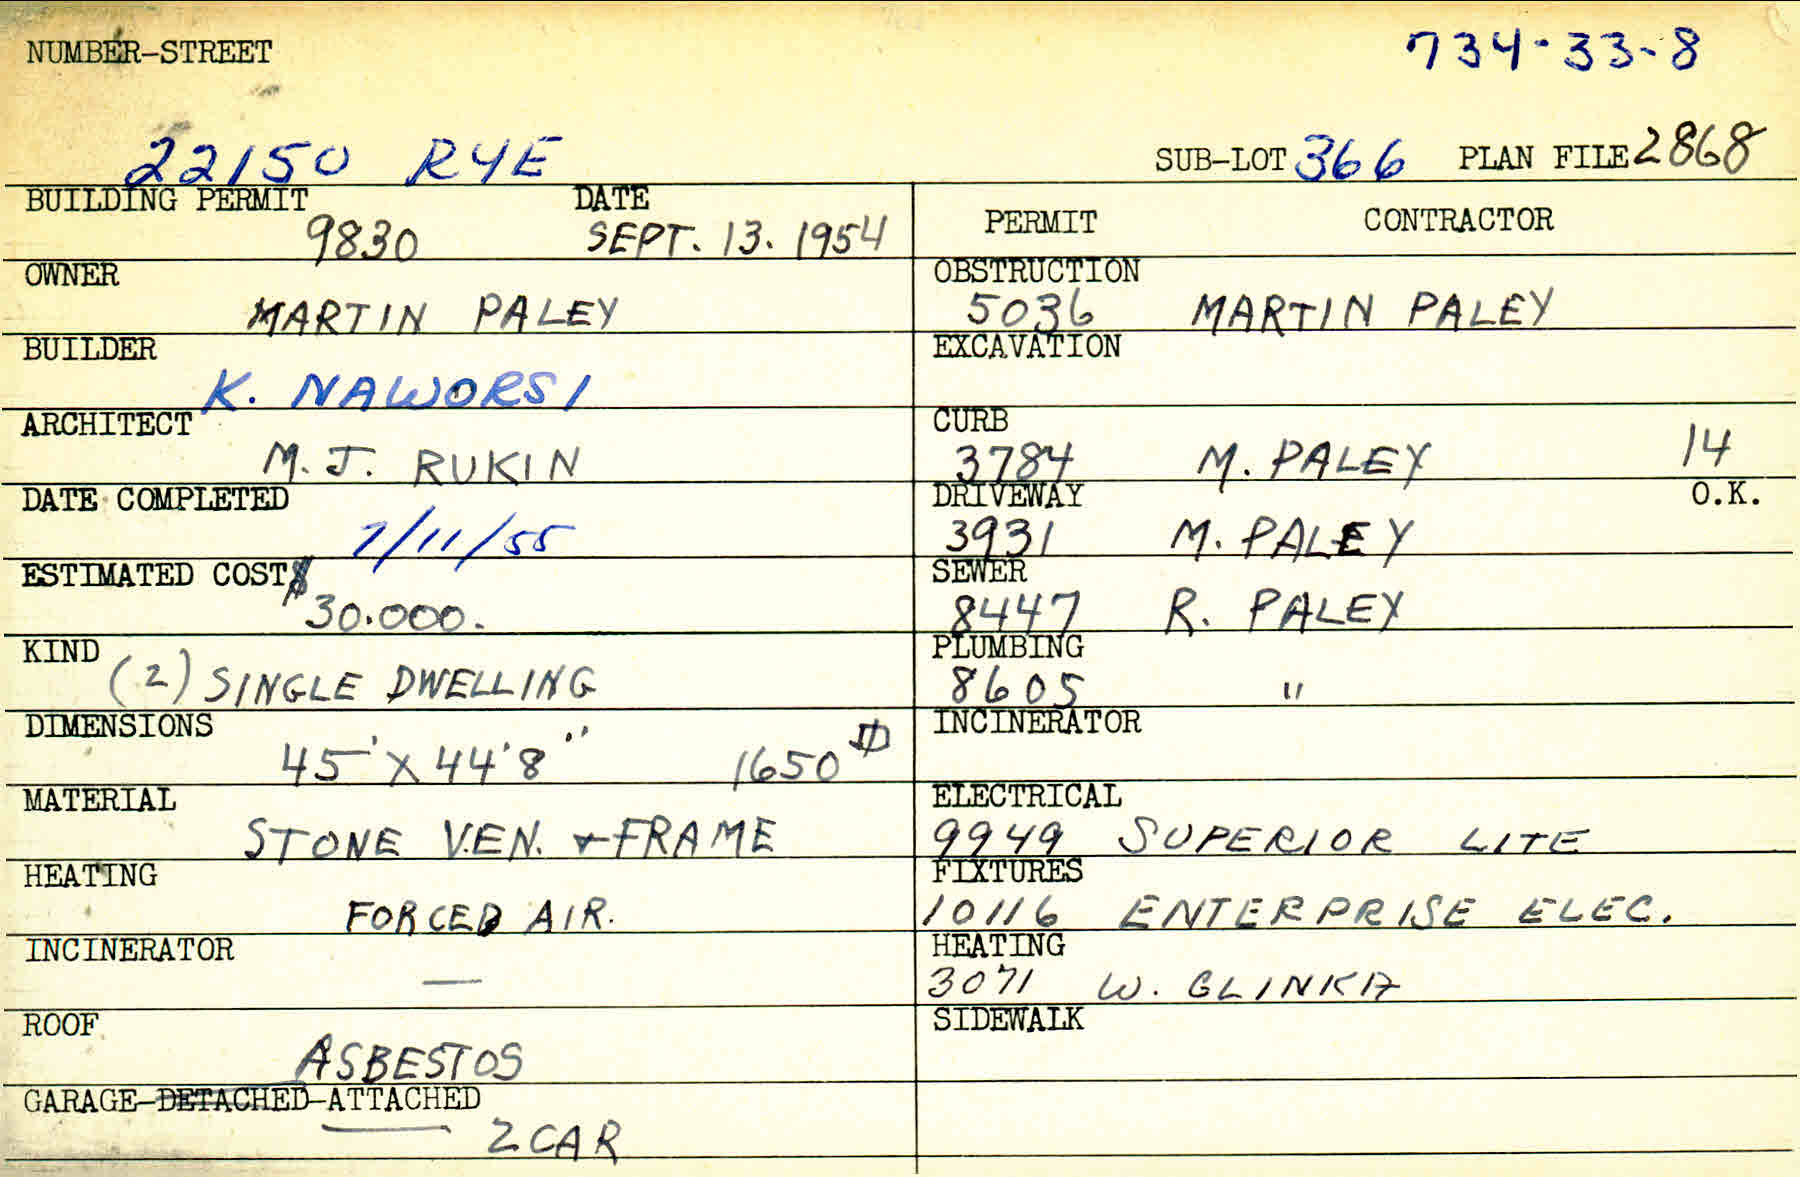 NUMBER-STREET 734-33-8
22150 RYE SUB-LOT 366 PLAN FILE 2868
BUILDING PERMIT DATE
9830 SEPT. 13. 1954
PERMIT CONTRACTOR
OWNER
MARTIN PALEY
OBSTRUCTION
5036 MARTIN PALEY
BUILDER
K. NAWORSI
EXCAVATION
ARCHITECT
M. J. RUKIN
CURB
3784 M. PALEY 14
DATE COMPLETED
7/11/55
DRIVEWAY O.K.
3931 M. PALEY
ESTIMATED COST $
30.000.
SEWER
8447 R. PALEY
KIND
(2) SINGLE DWELLING
PLUMBING
8605 "
DIMENSIONS
45' X 44'8" 1650
INCINERATOR
MATERIAL
STONE VEN. + FRAME
ELECTRICAL
9949 SUPERIOR LITE
HEATING
FORCED AIR.
FIXTURES
10116 ENTERPRISE ELEC.
INCINERATOR
—
HEATING
3071 W. GLINKA
ROOF
ASBESTOS
SIDEWALK
GARAGE-DETACHED-ATTACHED
2 CAR